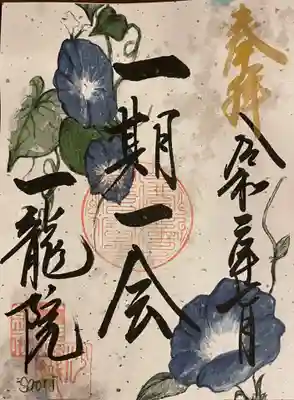 奉拝
令和三年七月
一期一会
一龍院
Saori